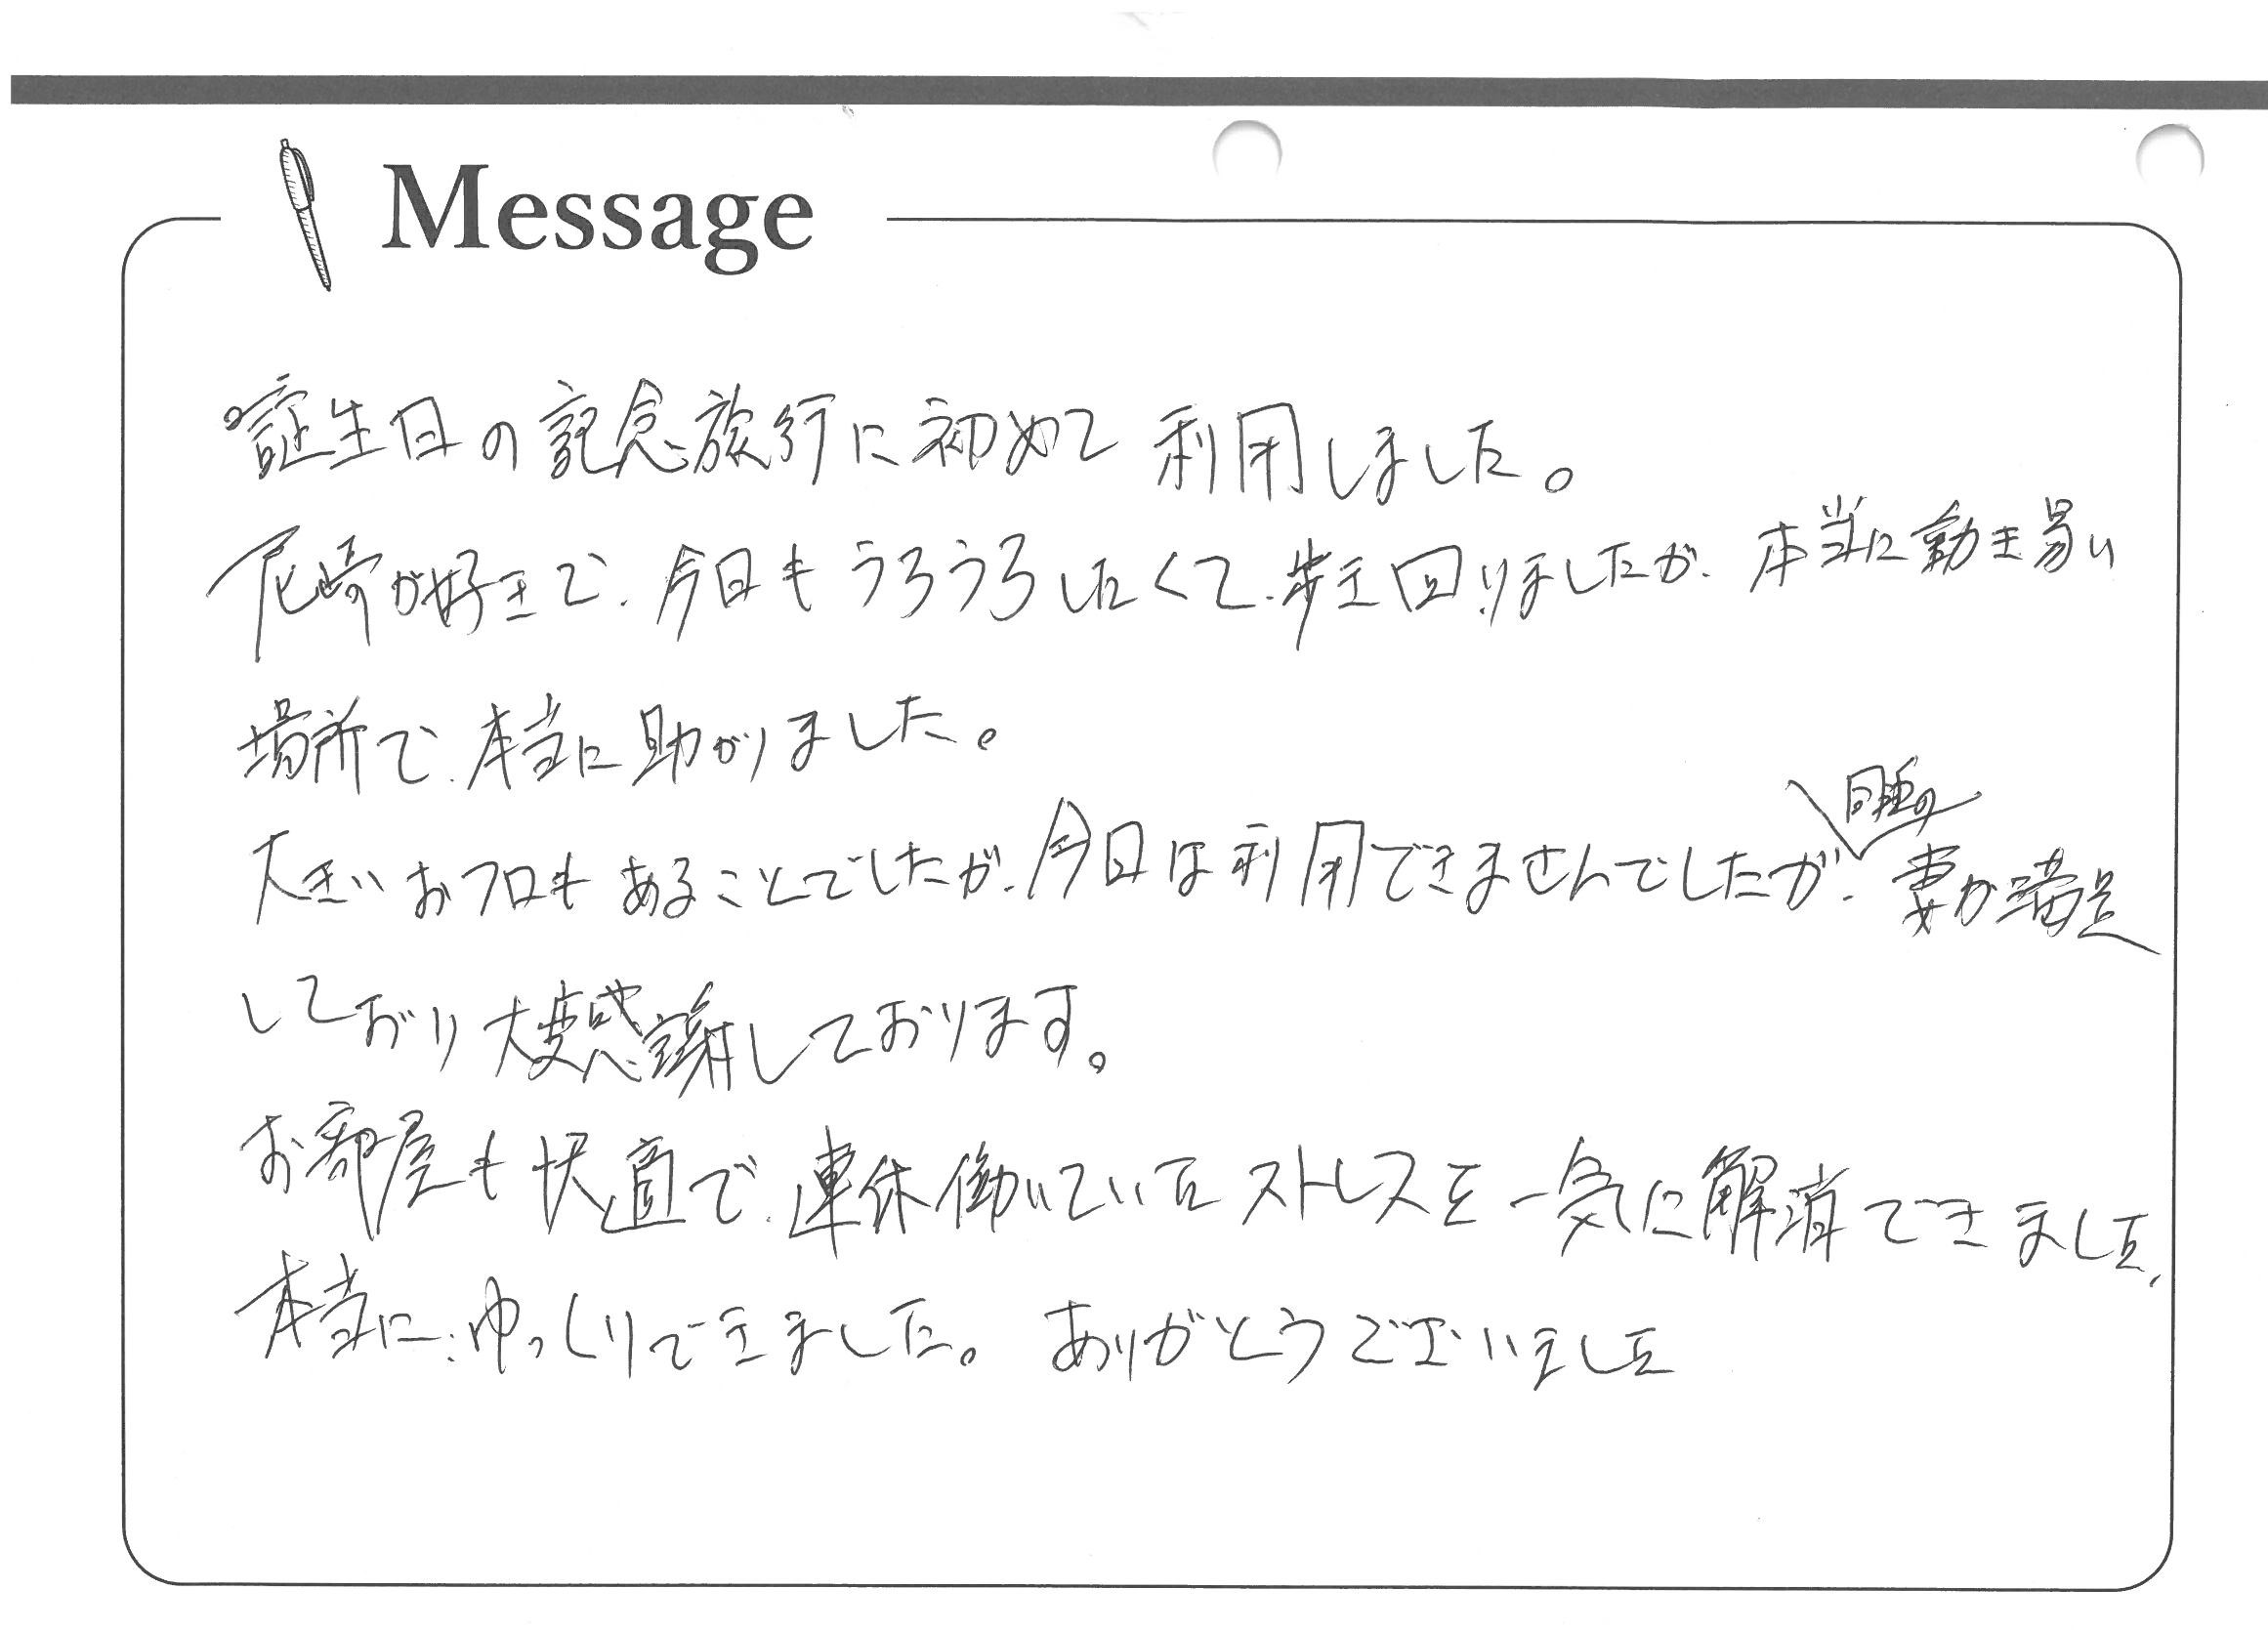 Message
誕生日の記念旅行に初めて利用しました。
尼崎が好きで、今日もうろうろしたくて、歩き回りましたが、本当に動き易い
場所で、本当に助かりました。
大きいおフロもあることでしたが、今日は利用できませんでしたが、妻が満足
しており大変感謝しております。
お部屋も快適で、連休働いていたストレスを一気に解消できました、
本当に、ゆっくりできました。ありがとうございました